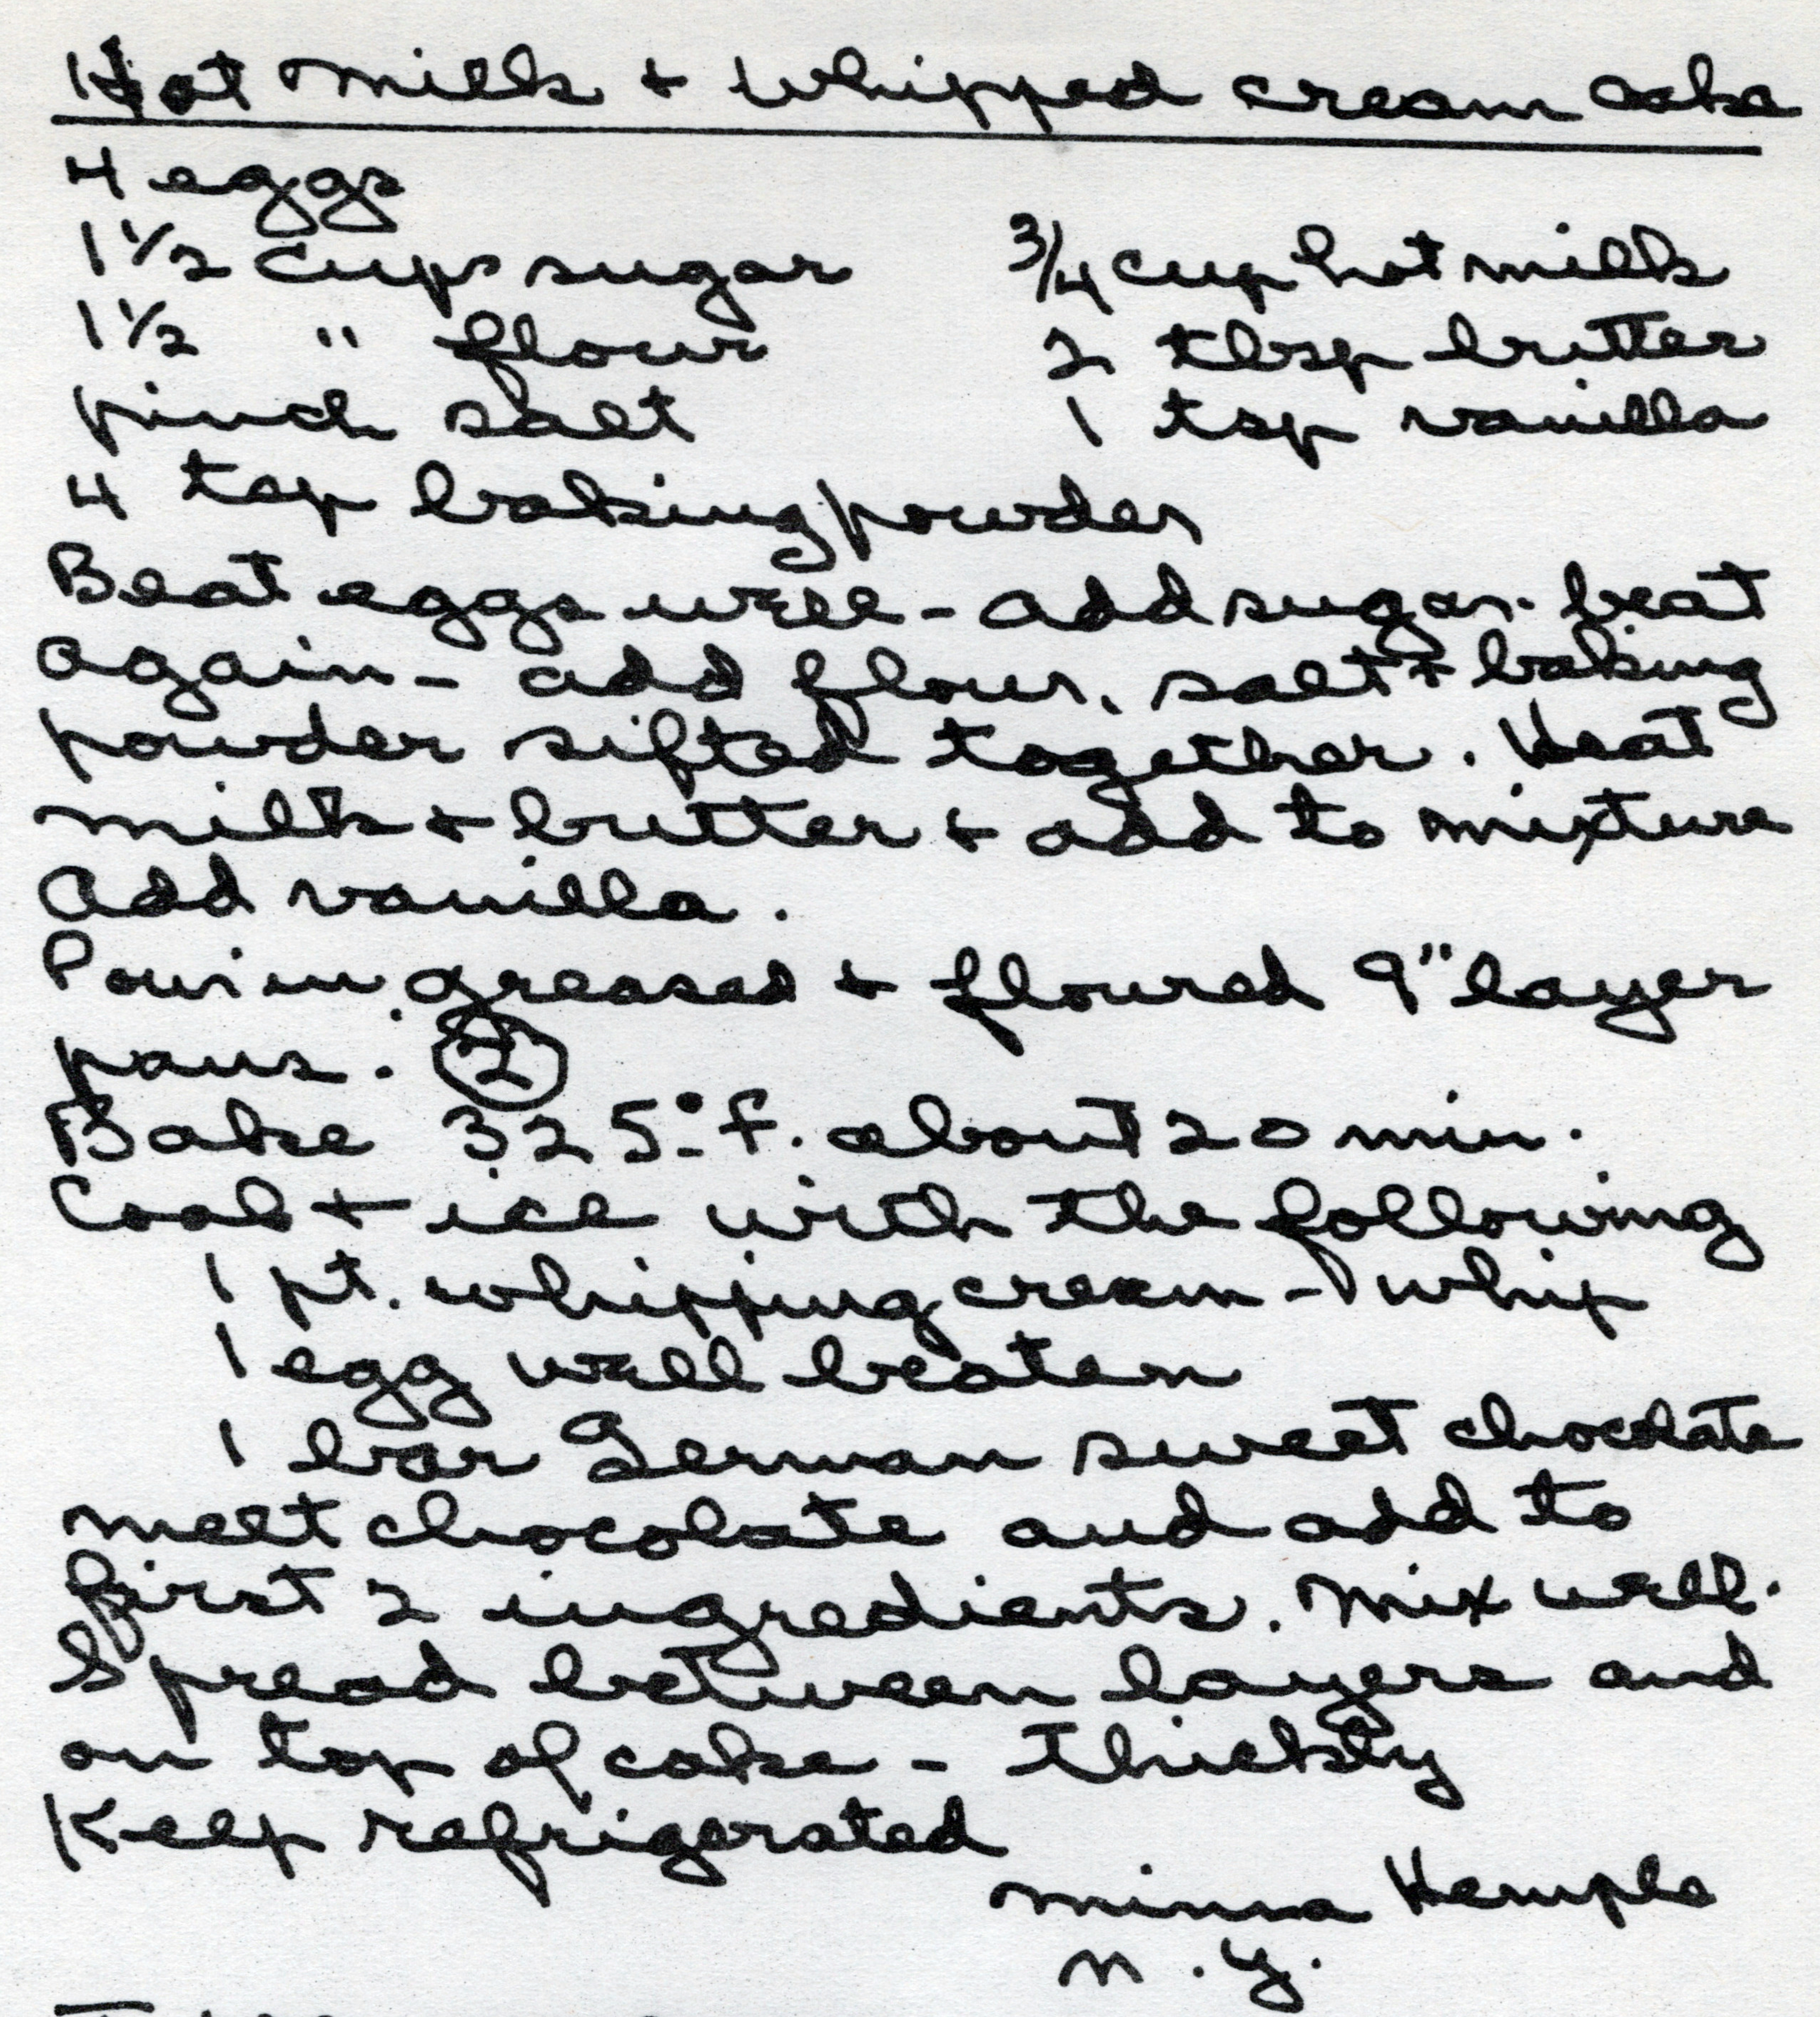 Hot Milk + Whipped cream cake
4 eggs
1 1/2 cups sugar 3/4 cup hot milk
1 1/2 " flour 2 tbsp butter
pinch salt 1 tsp vanilla
4 tsp baking powder
Beat eggs well - add sugar. beat
again - add flour, salt + baking
powder sifted together. Heat
milk + butter + add to mixture
Add vanilla.
Pour in greased + floured 9" layer
pans. 2
Bake 325° F. about 20 min.
Cool + ice with the following
1 pt. whipping cream - whip
1 egg well beaten
1 bar German sweet chocolate
melt chocolate and add to
first 2 ingredients. Mix well.
Spread between layers and
on top of cake - thickly
Keep refrigerated
Minna Hemple
N.Y.